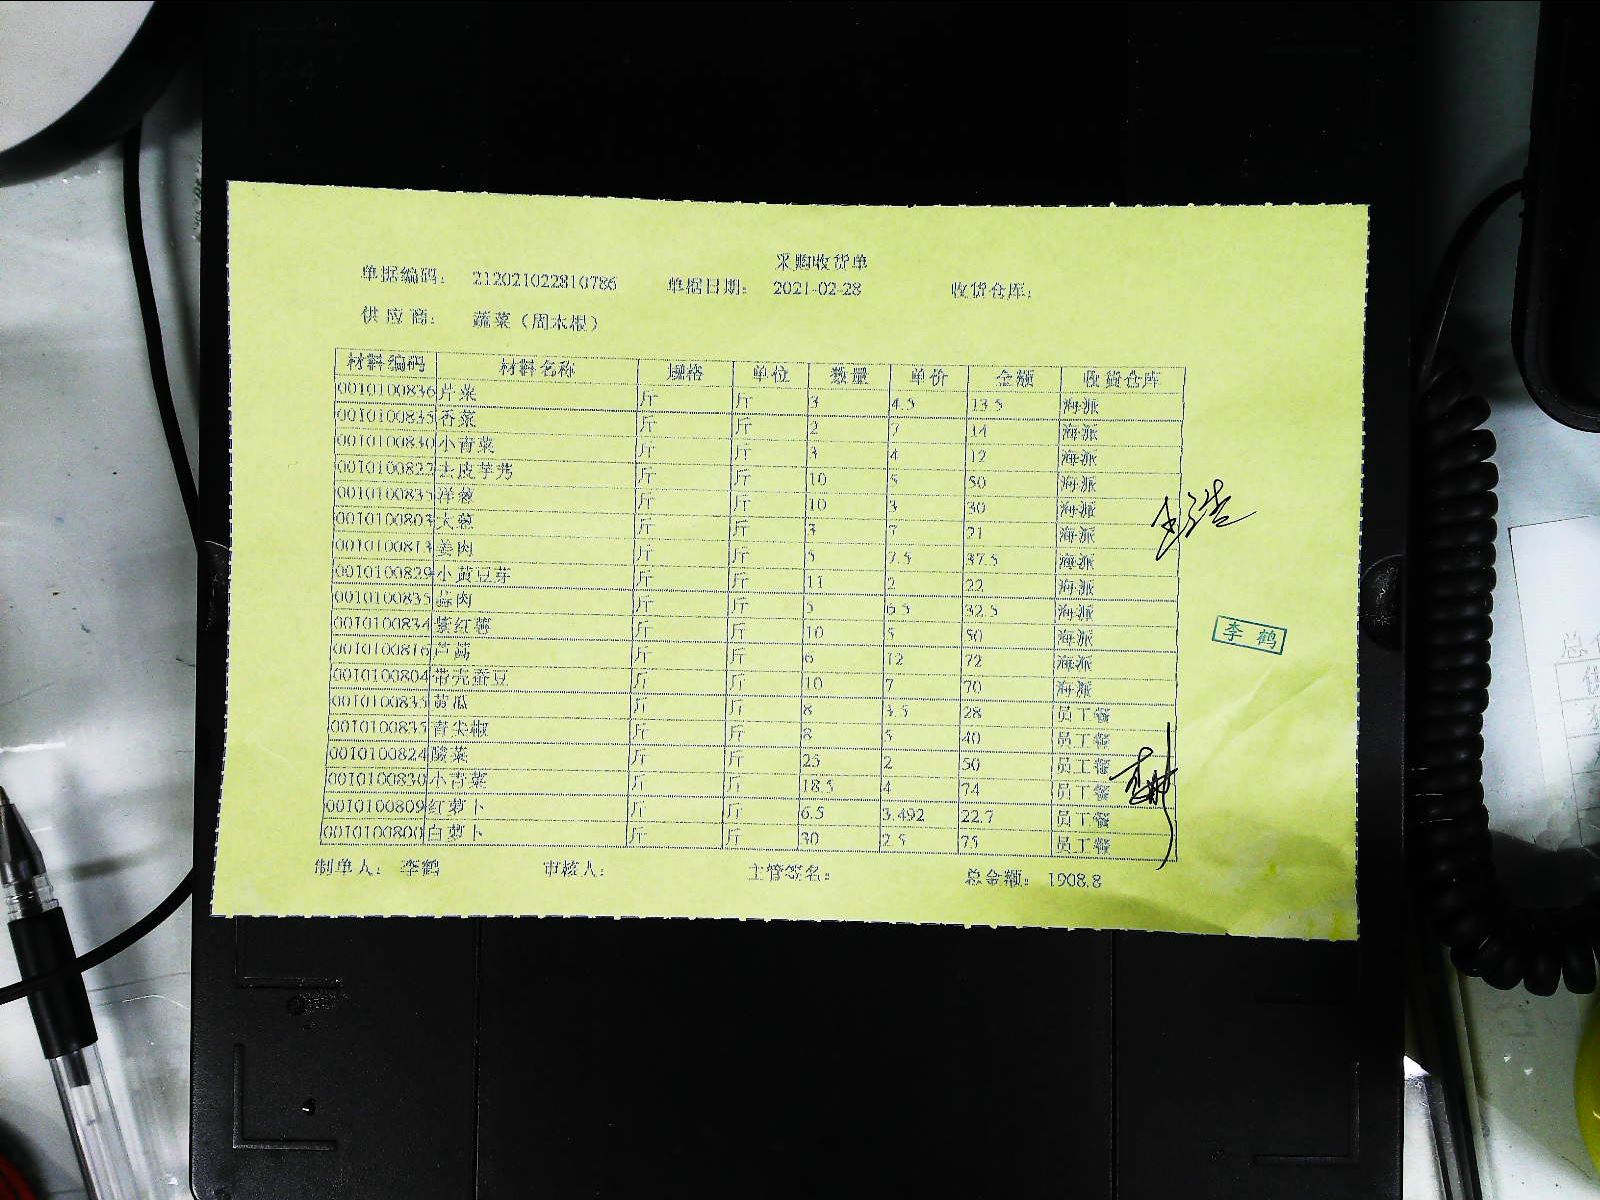 采购收货单
单据编码： 212021022810786 单据日期： 2021-02-28 收货仓库：
供应商： 蔬菜（周本根）
材料编码 材料名称 规格 单位 数量 单价 金额 收货仓库
0010100836 芹菜 斤 斤 3 4.5 13.5 海派
0010100835 香菜 斤 斤 2 7 14 海派
0010100830 小青菜 斤 斤 3 4 12 海派
0010100827 去皮芋艿 斤 斤 10 5 50 海派
0010100835 洋葱 斤 斤 10 3 30 海派
0010100803 大葱 斤 斤 3 7 21 海派
0010100813 姜肉 斤 斤 5 7.5 37.5 海派
0010100829 小黄豆芽 斤 斤 11 2 22 海派
0010100835 蒜肉 斤 斤 5 6.5 32.5 海派
0010100834 紫红薯 斤 斤 10 5 50 海派
0010100816 芦蒿 斤 斤 6 12 72 海派
0010100804 带壳蚕豆 斤 斤 10 7 70 海派
0010100835 黄瓜 斤 斤 8 3.5 28 员工餐
0010100835 青尖椒 斤 斤 8 5 40 员工餐
0010100824 酸菜 斤 斤 25 2 50 员工餐
0010100830 小青菜 斤 斤 18.5 4 74 员工餐
0010100809 红萝卜 斤 斤 6.5 3.492 22.7 员工餐
0010100800 白萝卜 斤 斤 30 2.5 75 员工餐
李鹤
制单人： 李鹤 审核人： 主管签名： 总金额： 1908.8